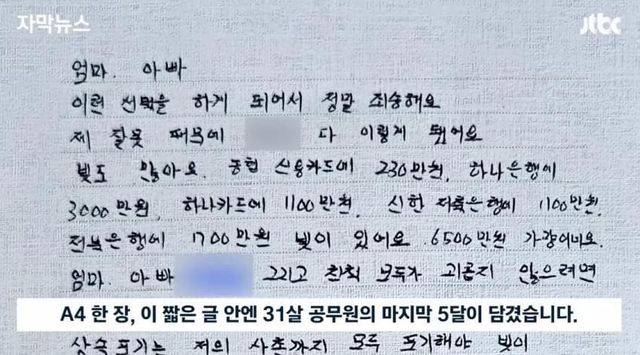 자막뉴스
jtbc
엄마. 아빠
이런 선택을 하게 되어서 정말 죄송해요
제 잘못 때문에 다 이렇게 됐어요
빚도 많아요. 농협 신용카드에 230만원, 하나은행에
3000만원, 하나카드에 1100만원, 신한 저축은행에 1100만원,
전북은행에 1700만원 빚이 있어요 6500만원 가량이네요.
엄마. 아빠 그리고 친척 모두가 괴롭지 않으려면
A4 한 장, 이 짧은 글 안엔 31살 공무원의 마지막 5달이 담겼습니다.
상속 포기는 저의 사촌까지 모두 포기해야 빚이